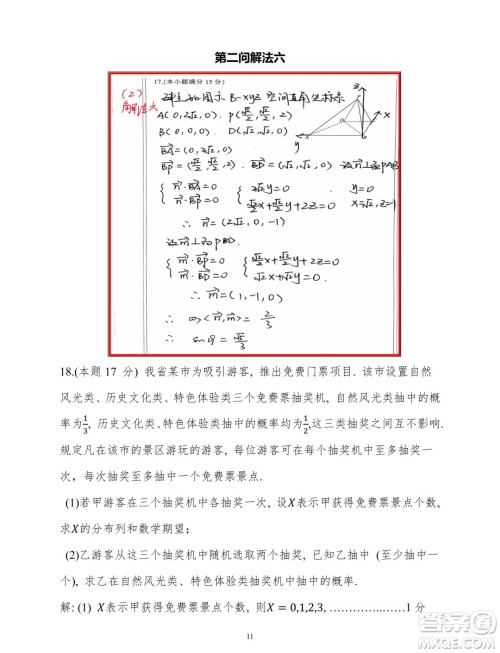 第二问解法六
17.(本小题满分15分)
(2)
解法六
建立如图示 B-xyz 空间直角坐标系
A(0, 2√2, 0), P(√2/2, √2/2, 2)
B(0, 0, 0), D(√2, √2, 0)
BA=(0, 2√2, 0)
BP=(√2/2, √2/2, 2), BD=(√2, √2, 0) 设n⊥面PAB
n·BA=0 2√2y=0 y=0
n·BP=0 √2/2x+√2/2y+2z=0
∴ n=(2√2, 0, -1)
设m⊥面PBD
m·BP=0 √2/2x+√2/2y+2z=0
m·BD=0 √2x+√2y=0
∴ m=(1, -1, 0)
∴ cos<n, m>=2/3
∴ sinθ=√5/3
z
y
x
18.(本题 17 分) 我省某市为吸引游客, 推出免费门票项目. 该市设置自然
风光类、历史文化类、特色体验类三个免费票抽奖机, 自然风光类抽中的概
率为1/3, 历史文化类、特色体验类抽中的概率均为1/2,这三类抽奖互不影响.
规定凡在该市的景区游玩的游客, 每位游客可在每个抽奖机中至多抽奖一
次，每次抽奖至多抽中一个免费票景点.
(1)若甲游客在三个抽奖机中各抽奖一次，设X表示甲获得免费票景点个数,
求X的分布列和数学期望；
(2)乙游客从这三个抽奖机中随机选取两个抽奖, 已知乙抽中 (至少抽中一
个), 求乙在自然风光类、特色体验类抽奖机中抽中的概率.
解: (1) X表示甲获得免费票景点个数, 则X = 0,1,2,3, …………..……1 分
11
答案圈